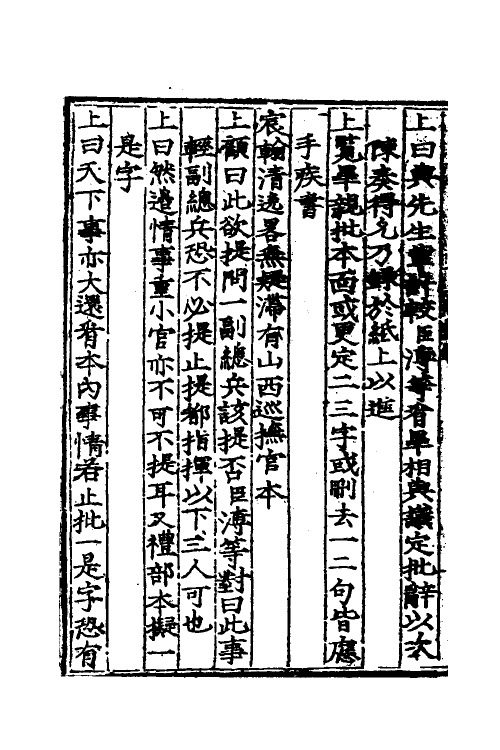 上曰與先生輩計較臣溥等看畢相與議定批辭以次
陳奏得允乃錄於紙上以進
上覧畢親批本面或更定二三字或刪去一二句皆應
手疾書
宸翰清逸畧無疑滯有山西巡撫官本
上顧曰此欲提問一副總兵該提否臣溥等對曰此事
輕副總兵恐不必提止提都指揮以下三人可也
上曰然邉情事重小官亦不可不提耳又禮部本擬一
是字
上曰天下事亦大還看本內事情若止批一是字恐有